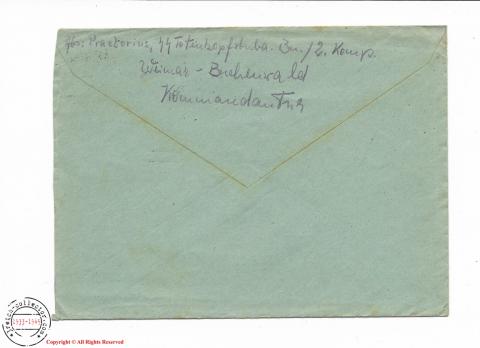 Abs: Praetorius, SS Totenkopfstuba. Bu./2. Komp.
Weimar - Buchenwald
Kommandantur
1933-1945
Copyright © All Rights Reserved